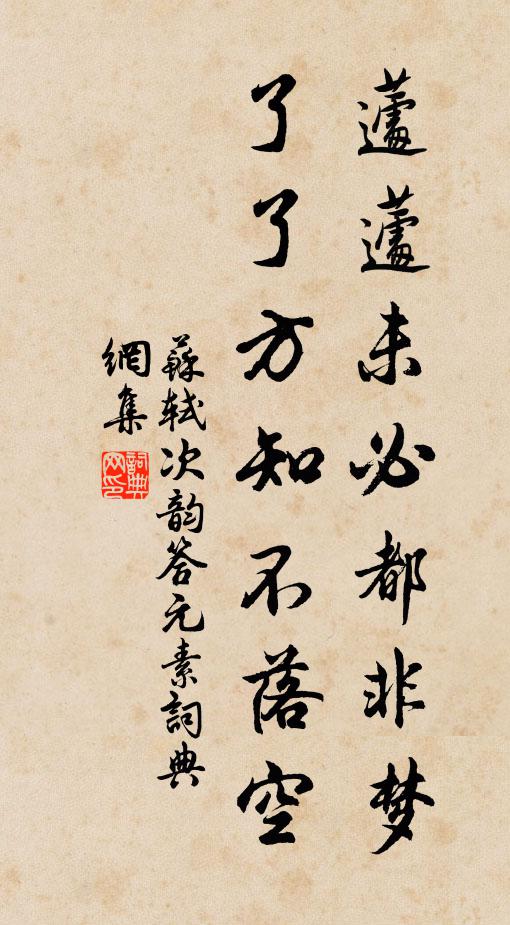 蘧蘧未必都非梦
了了方知不落空
蘇軾次韵答元素詞典
網集
詞典
网印